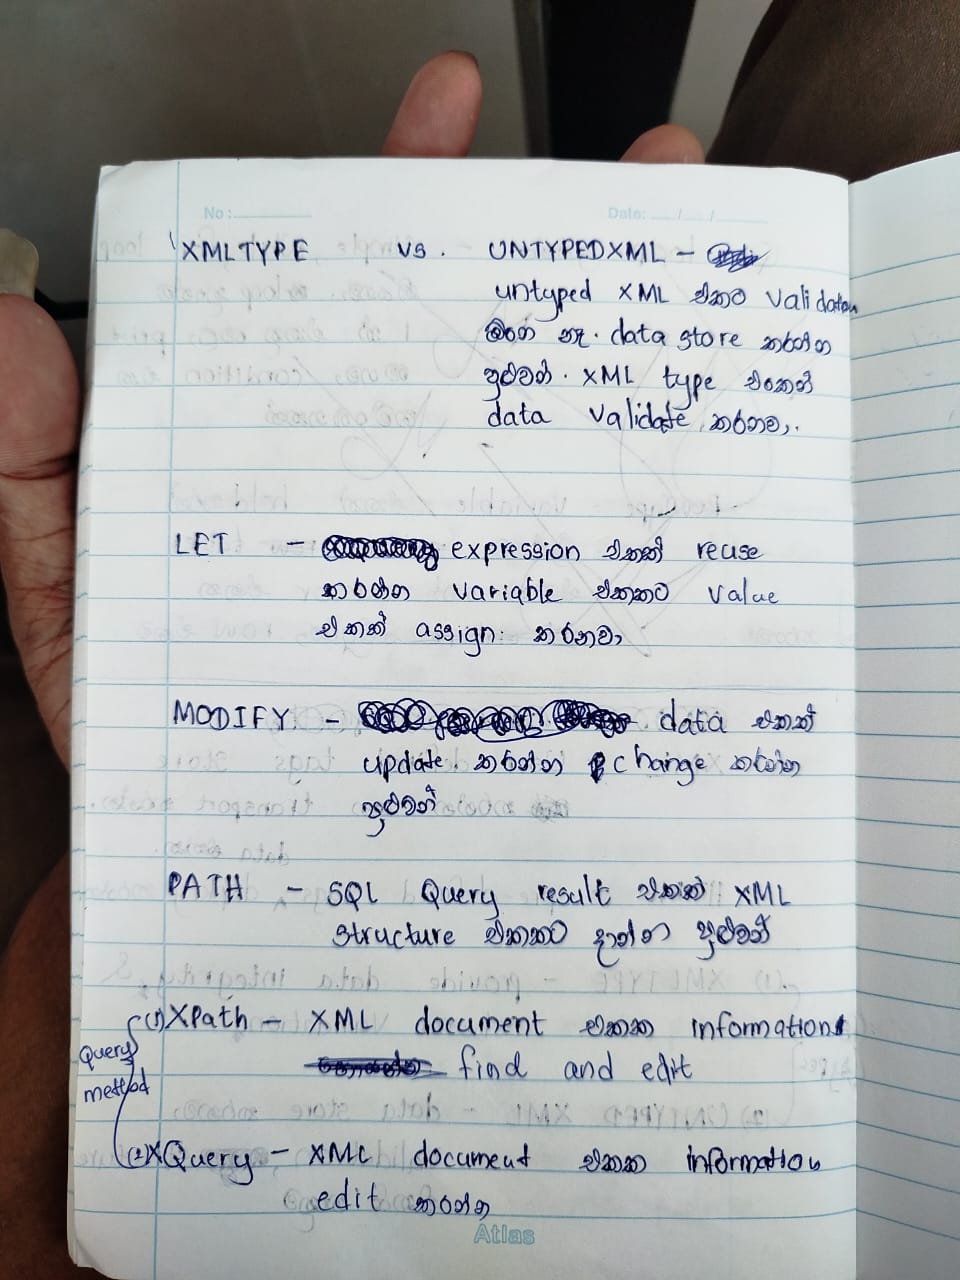 No: Date: / /
XMLTYPE VS. UNTYPEDXML -
untyped XML එකට Validation
ඕනේ නෑ. data store කරන්න
පුළුවන්. XML type එකෙන්
data validate කරනවා.
LET - expression එකක් reuse
කරන්න variable එකකට value
එකක් assign කරනවා
MODIFY - data එකක්
update කරන්න change කරන්න
පුළුවන්
PATH - SQL Query result එකක් XML
structure එකකට දාන්න පුළුවන්
(1) XPath - XML document එකක information
Query method
find and edit
(2) XQuery - XML document එකක information
edit කරන්න
Atlas